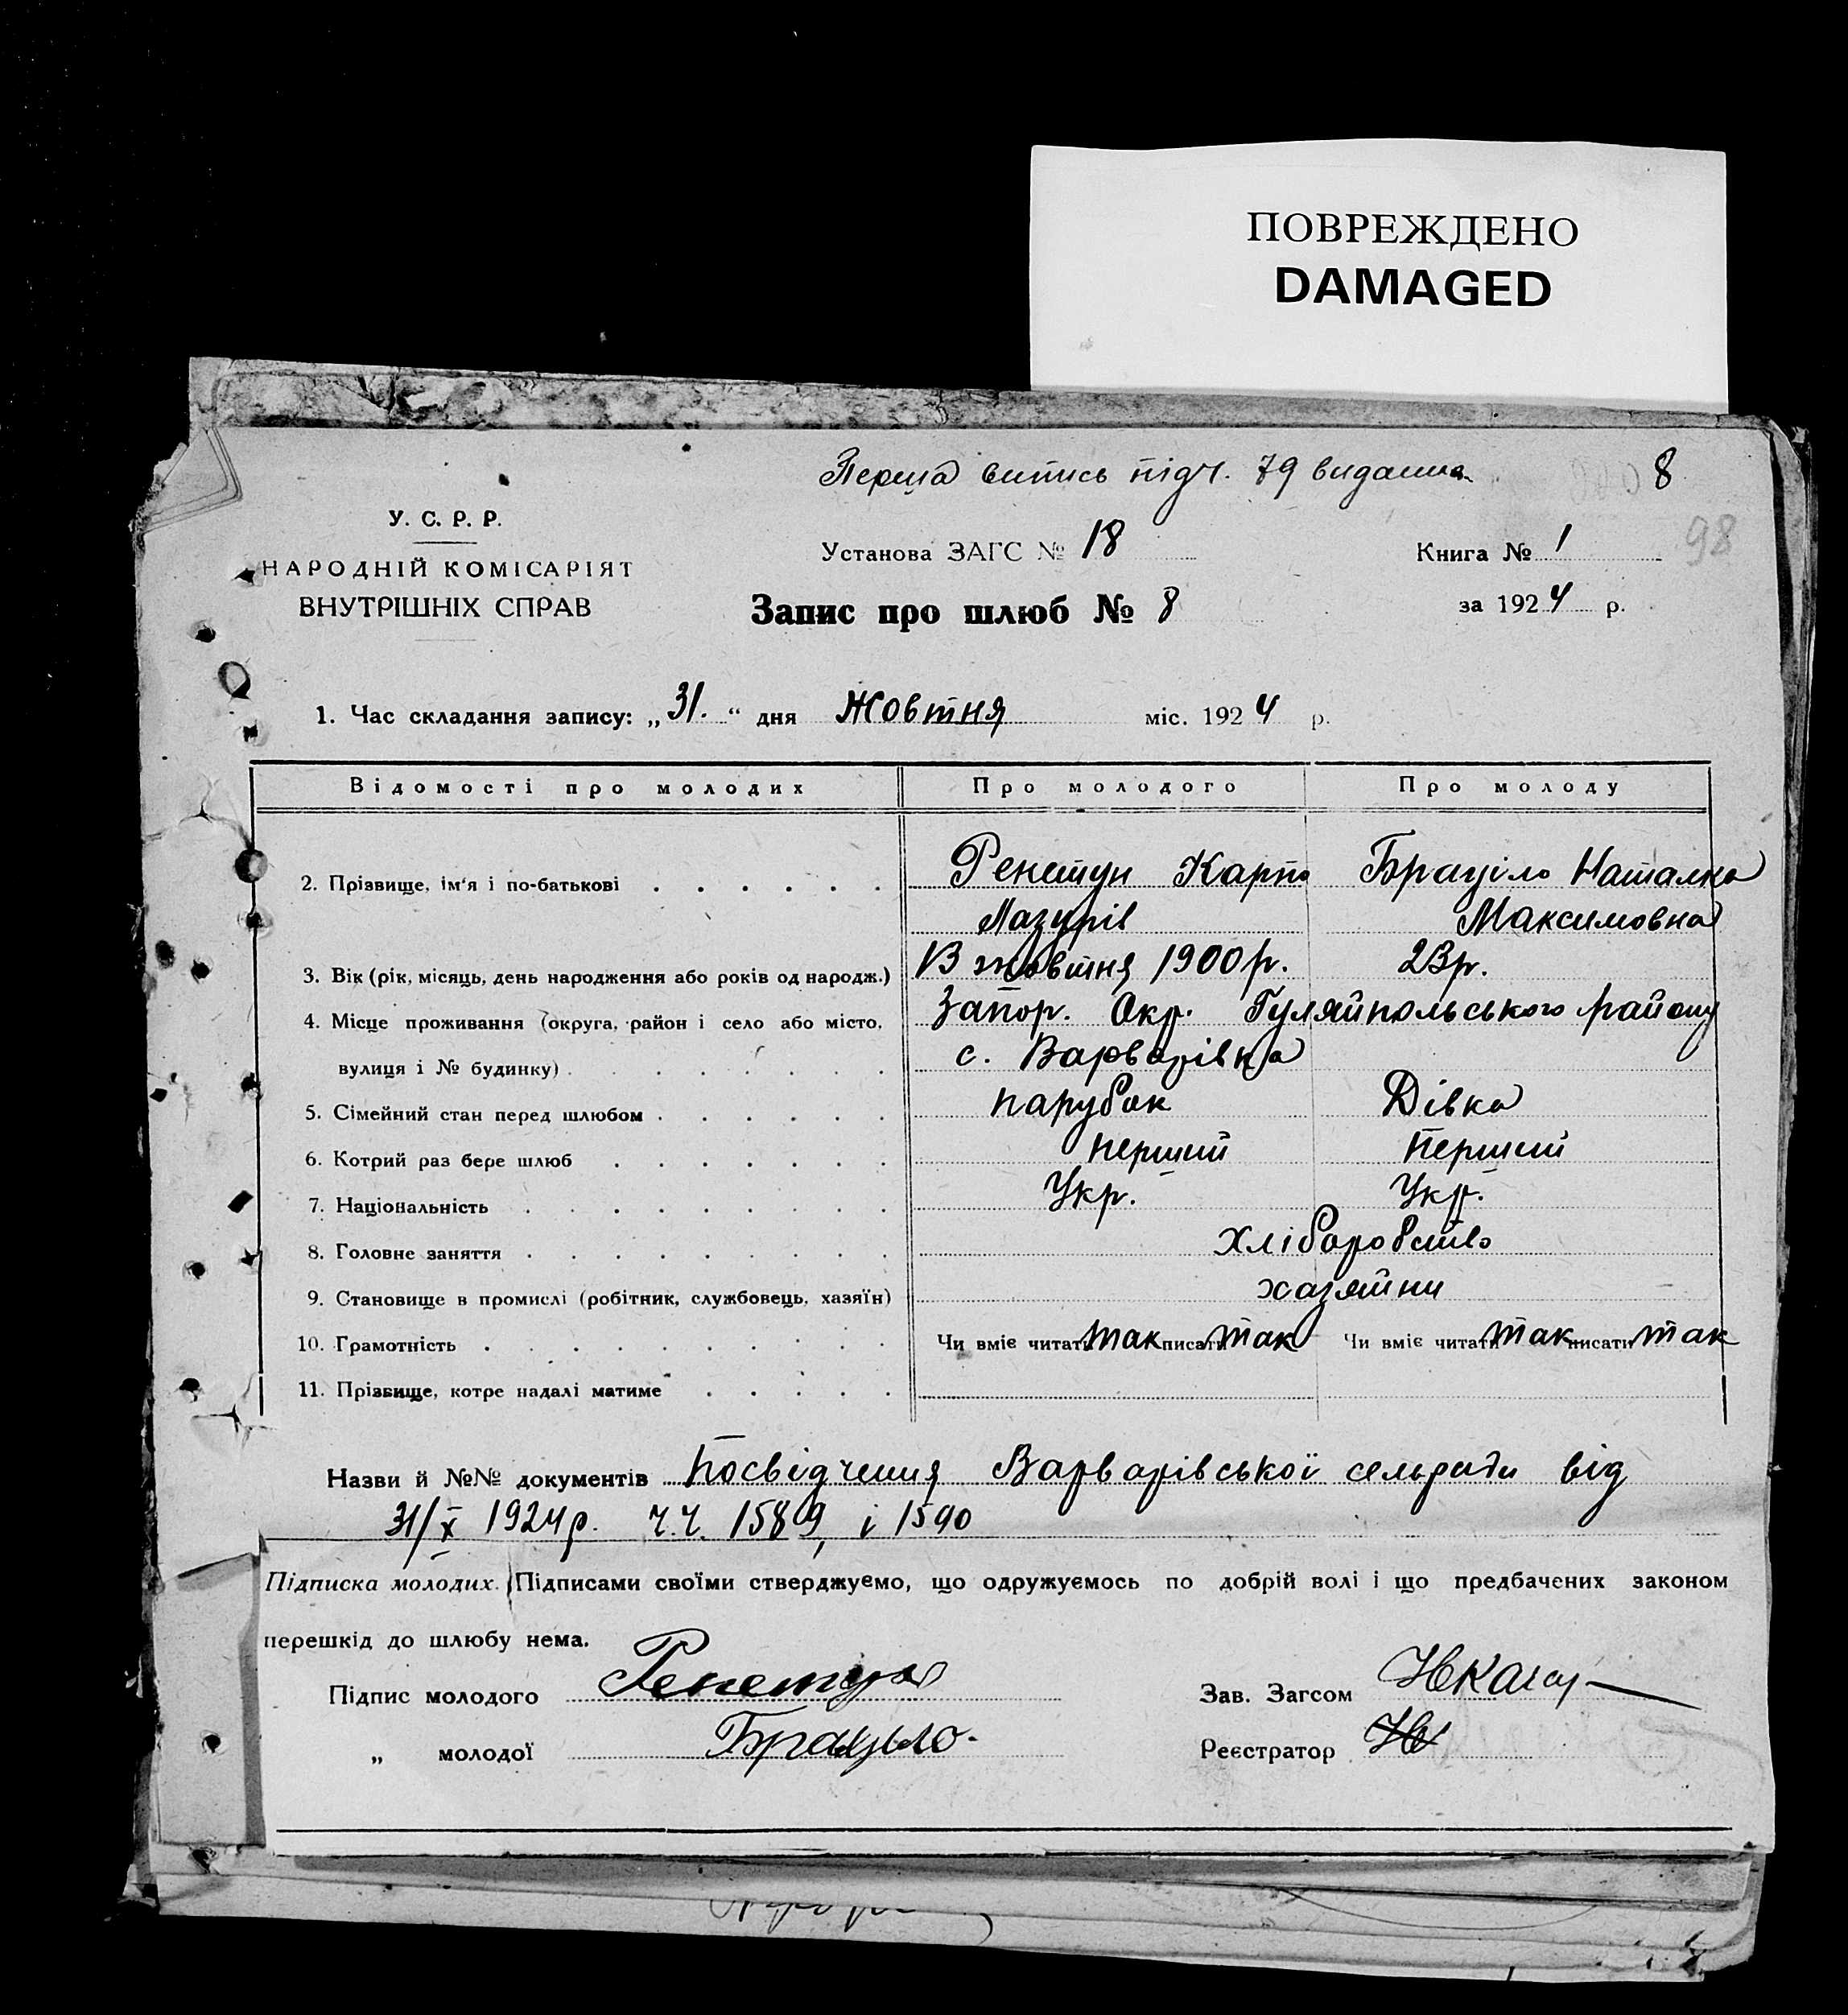 ПОВРЕЖДЕНО
DAMAGED
Перша випись під ч. 79 видана 8
98
У. С. Р. Р.
НАРОДНІЙ КОМІСАРІЯТ
ВНУТРІШНІХ СПРАВ
Установа ЗАГС № 18
Книга № 1
Запис про шлюб № 8
за 1924 р.
1. Час складання запису: „31." дня Жовтня міс. 1924 р.
Відомості про молодих Про молодого Про молоду
2. Прізвище, ім'я і по-батькові Карпо Наталка
Лазурів Максимовна
3. Вік (рік, місяць, день народження або років од народж.) 13 жовтня 1900 р. 23р.
4. Місце проживання (округа, район і село або місто, Запор. Окр. Гуляйпольського району
вулиця і № будинку) с. Варварівка
5. Сімейний стан перед шлюбом парубок Дівка
6. Котрий раз бере шлюб перший перший
7. Національність Укр. Укр.
8. Головне заняття хліборобство
9. Становище в промислі (робітник, службовець, хазяїн) хазяйни
10. Грамотність Чи вміє читати так писати так Чи вміє читати так писати так
11. Прізвище, котре надалі матиме
Назви й №№ документів Посвідчення Варварівської сельради від
31/X 1924р. ч.ч. 1589, і 1590
Підписка молодих. Підписами своїми стверджуємо, що одружуємось по добрій волі і що предбачених законом
перешкід до шлюбу нема.
Підпис молодого
Зав. Загсом
„ молодої
Реєстратор